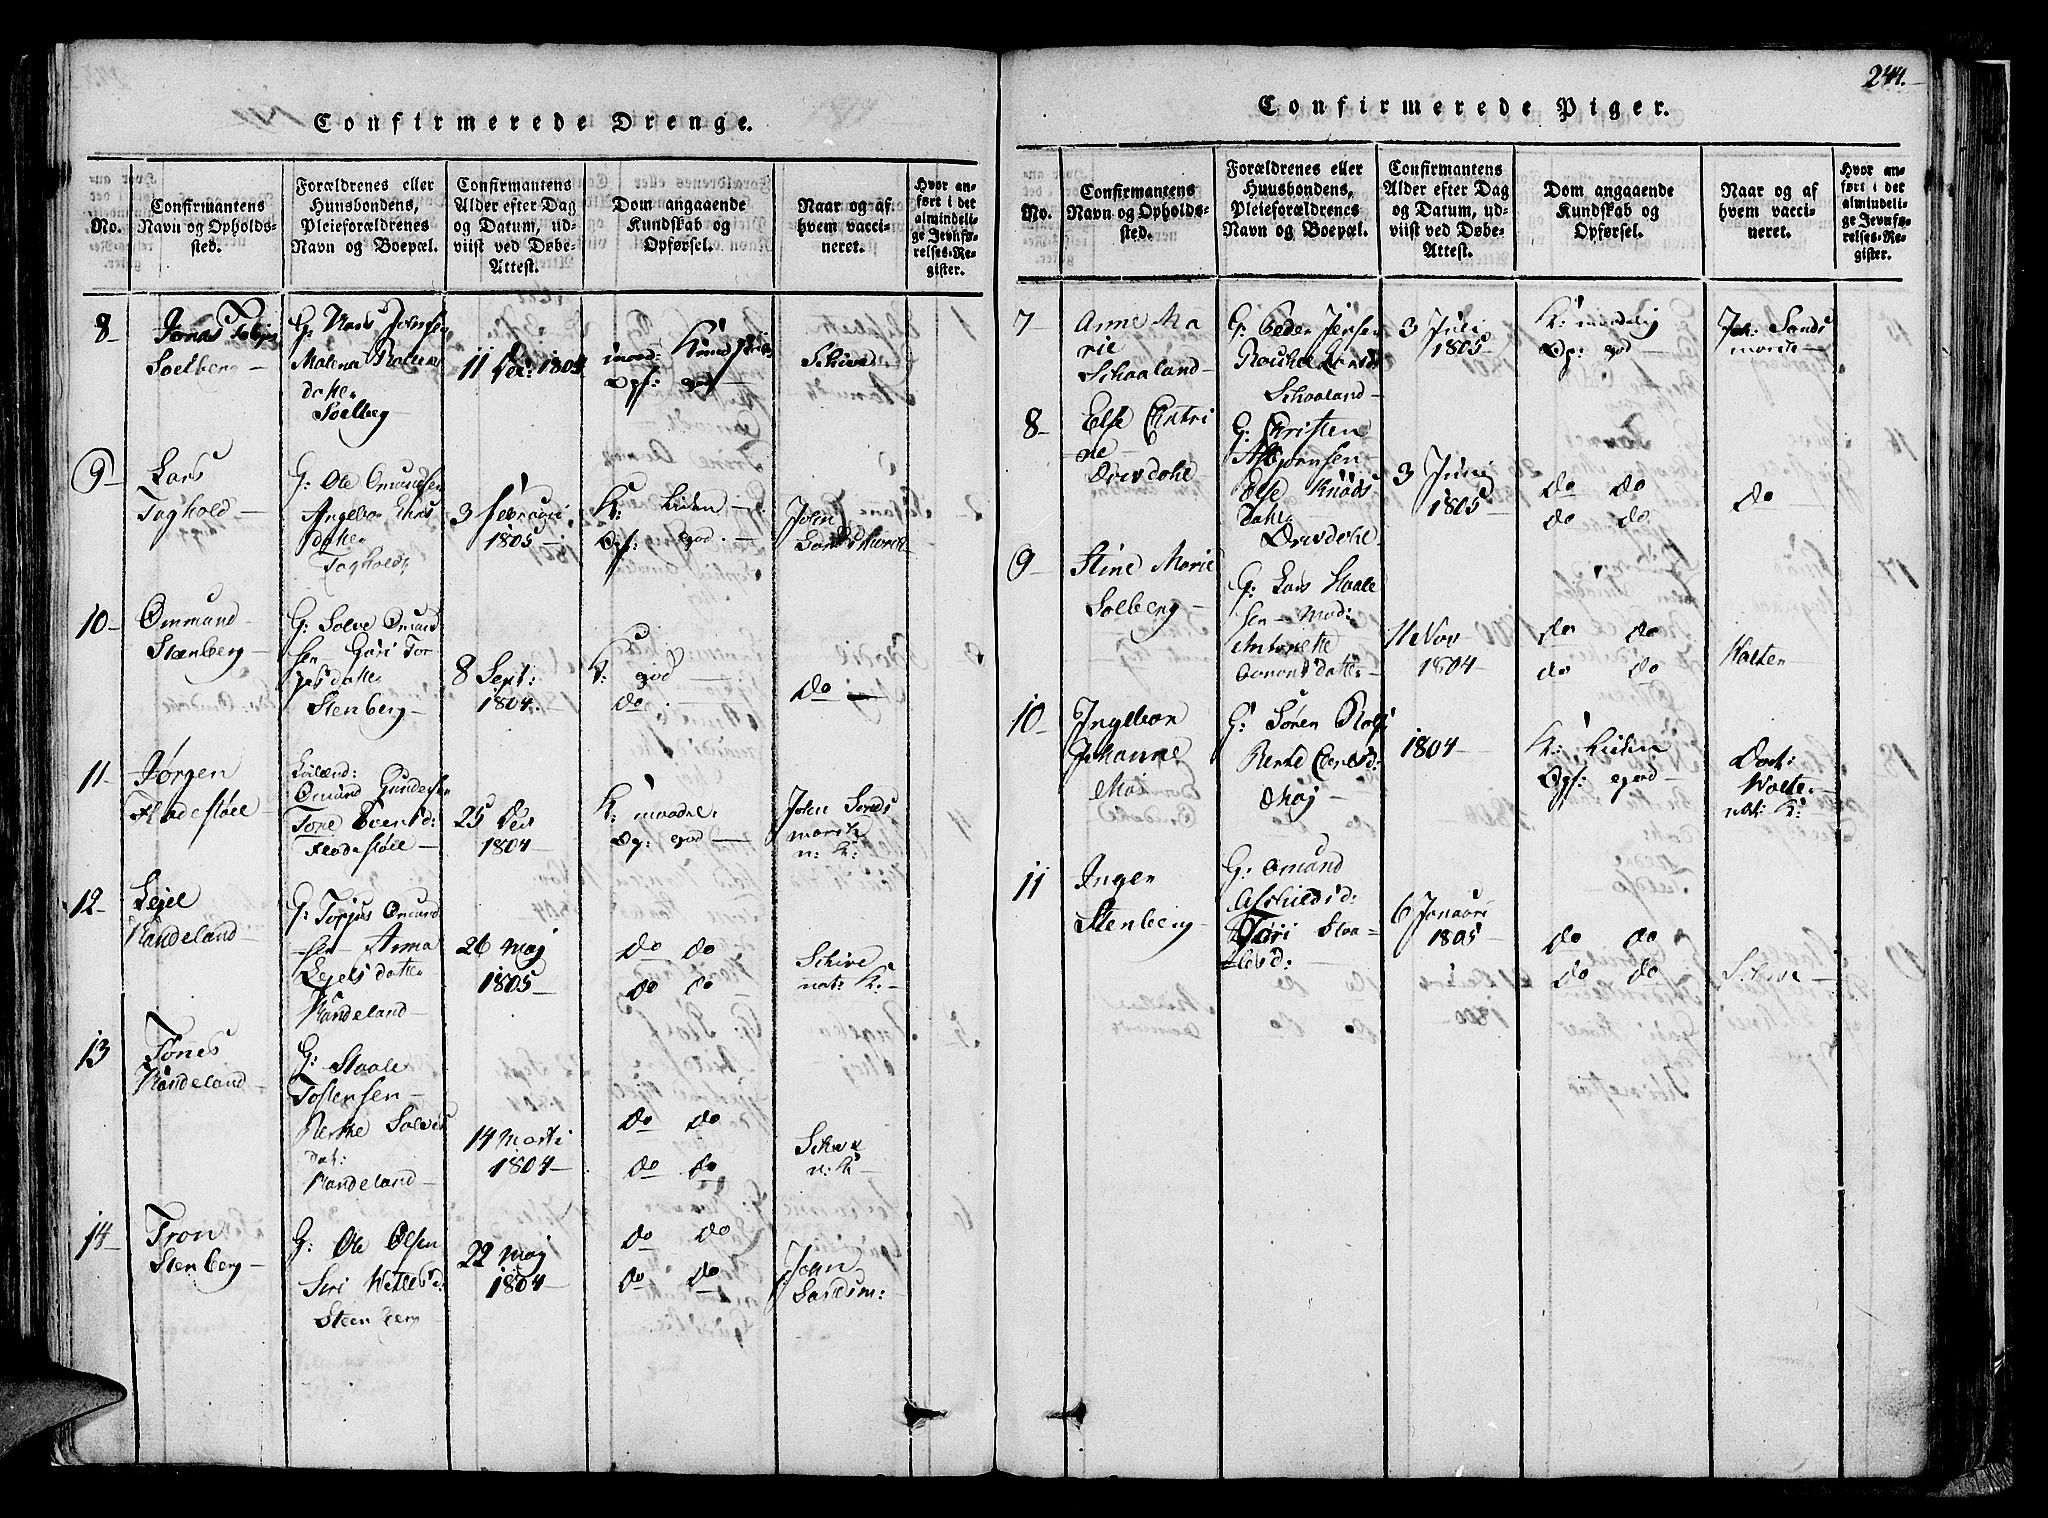 244.
Confirmerede Drenge.
No.
Confirmantens
Navn og Opholds-
sted.
Forældrenes eller
Huusbondens,
Pleieforældrenes
Navn og Boepæl.
Confirmantens
Alder efter Dag
og Datum, ud-
viist ved Døbe-
Attest.
Dom angaaende
Kundskab og
Opførsel.
Naar og af
hvem vacci-
neret.
Hvor an-
ført i det
almindeli-
ge Jevnfø-
relses-Re-
gister.
8
Jonas
Soelberg
G:
Malena
datter
Soelberg
11 Dec: 1804
Opf: god
Schive
9
Lars
Taghold
G: Ole Omundsen
datter
Tagholdt
3 Februari
1805
K: Liden
Opf: god
John
10
Ommund
Stenberg
G: Solve Omund
sen Guri Tor
datter
Stenberg
8 Sept:
1804.
K: god
do
do
11
Jørgen
Flodestøll
Omund Gundersen
Tone Evertsd:
Flodestøll
25 Dec
1804
K: maadel:
Op: god
John Sands
mark
n: K:
12
Eyel
Handeland
G: Torjus Omund
sen Anna
Eyels datter
Handeland
26 Maj
1805
do do
do do
Schive
nat: K:
13
Tønes
Handeland
G: Staale
Tostensen
Berthe Solves
dat:
Handeland
14 Marti
1804
do do
do do
Schive
n: K
14
Tron
Stenberg
G: Ole Olsen
Siri
Steenberg
22 Maj
1804
do do
do do
John
Sandsm:
Confirmerede Piger.
No.
Confirmantens
Navn og Opholds-
sted.
Forældrenes eller
Huusbondens,
Pleieforældrenes
Navn og Boepæl.
Confirmantens
Alder efter Dag
og Datum, ud-
viist ved Døbe-
Attest.
Dom angaaende
Kundskab og
Opførsel.
Naar og af
hvem vacci-
neret.
Hvor an-
ført i det
almindeli-
ge Jevnfø-
relses-Re-
gister.
7
Anne Ma
rie
Schaaland
G: Peder Jensen
Rachel
Schaaland
3 Juli
1805
K: maadelig
Op: god
Joh: Sands
mark
8
Else Chatri
ne
Drivdahl
G: Christen
Asbjørnsen
Else Knuds
datter
Drivdahl
3 Juni
1805
do do
do do
do
9
Stine Marie
Solberg
G: Lars Staale
sen Mad:
Antonette
datter
11 Nov
1804
do do
do do
Walter
10
Ingebor
Johanne
Moi
G: Søren
Berthe
Moj
1804
K: Liden
Opf: god
Doct:
Walter
nat: K:
11
Inger
Stenberg
G: Omund
Siri Staa-
lesd:
6 Januari
1805
do do
do do
Schive